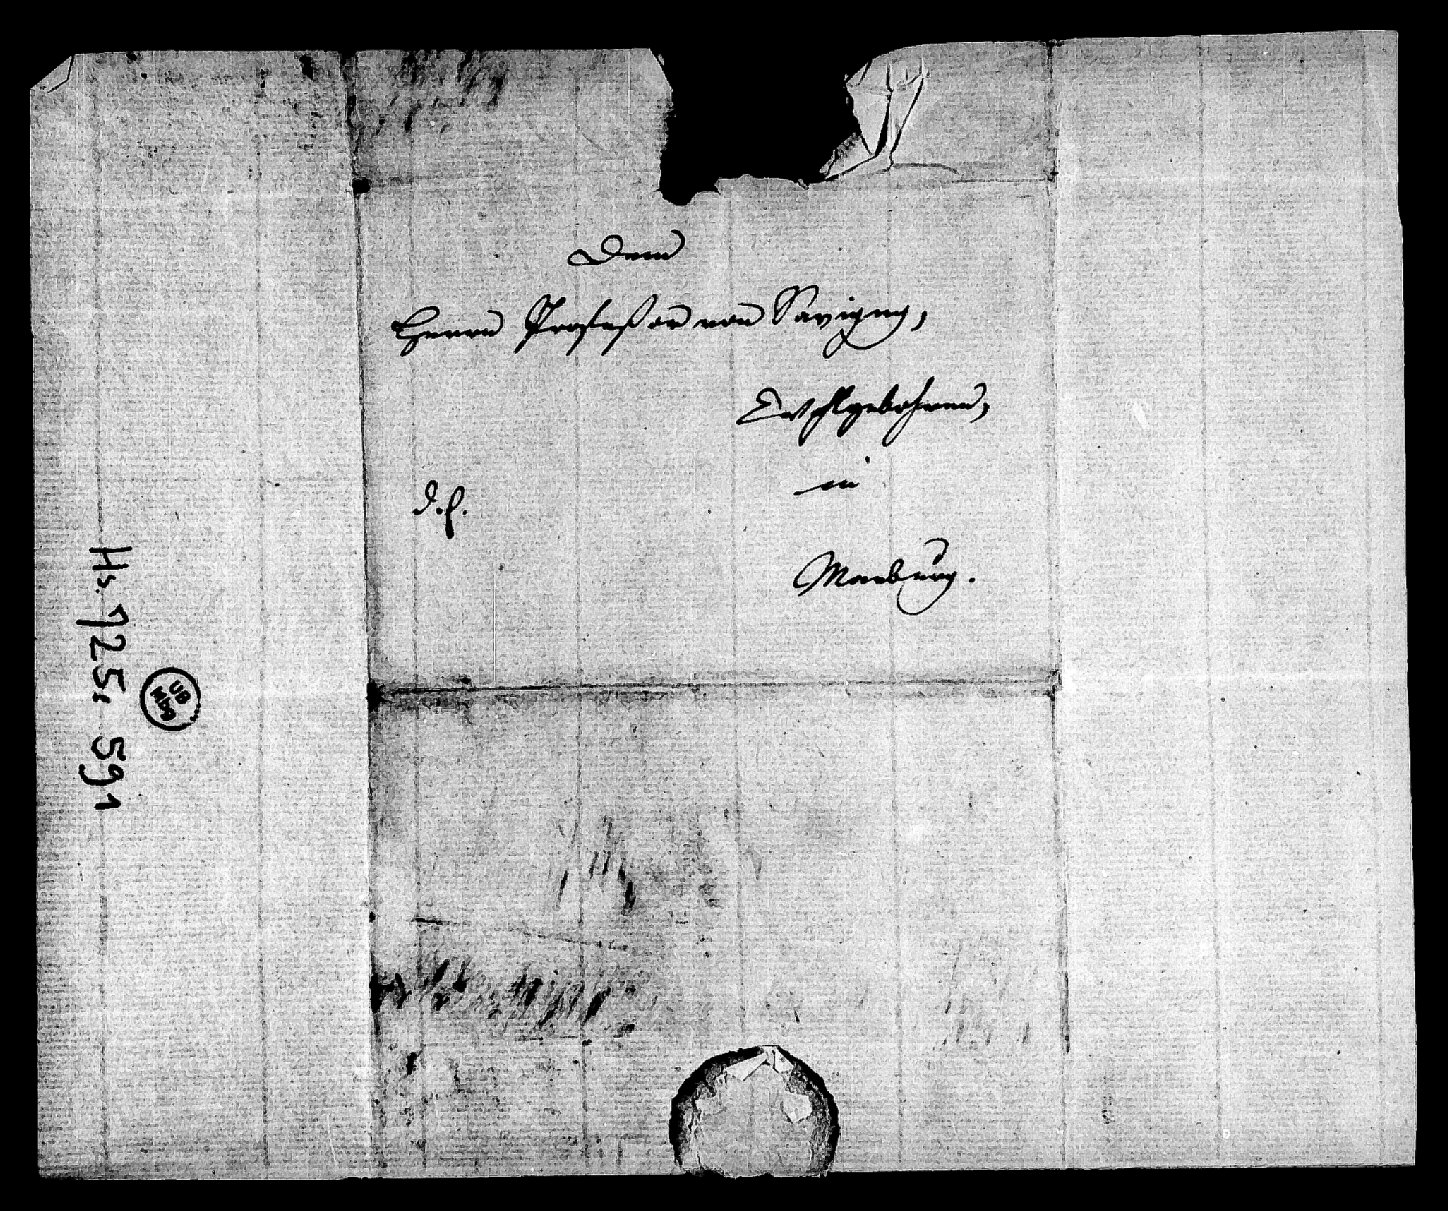 Dem
Herrn Professor von Savigny,
Wohlgebohren,
in
d. h.
Marburg.
Hs. 725: 591
UB
Mbg